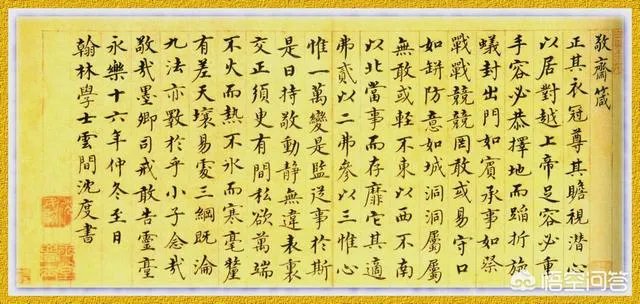 敬齋箴
正其衣冠尊其瞻視潛心
以居對越上帝足容必重
手容必恭擇地而蹈折旋
蟻封出門如賓承事如祭
戰戰兢兢罔敢或易守口
如缾防意如城洞洞屬屬
無敢或輕不東以西不南
以北當事而存靡它其適
弗貳以二弗參以三惟心
惟一萬變是監從事於斯
是曰持敬動靜無違表裏
交正須臾有間私欲萬端
不火而熱不冰而寒毫釐
有差天壤易處三綱既淪
九法亦斁於乎小子念哉
敬哉墨卿司戒敢告靈臺
永樂十六年仲冬至日
翰林學士雲間沈度書
悟空问答